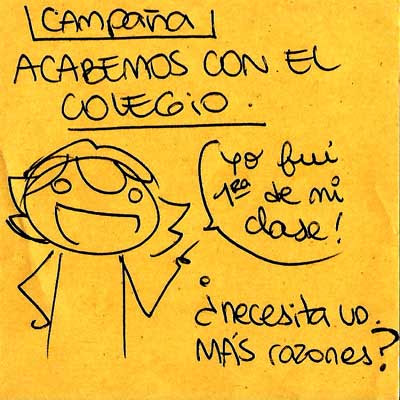 CAMPAÑA
ACABEMOS CON EL
COLEGIO.
yo fui
1ra de mi
clase!
¿necesita ud.
MÁS razones?